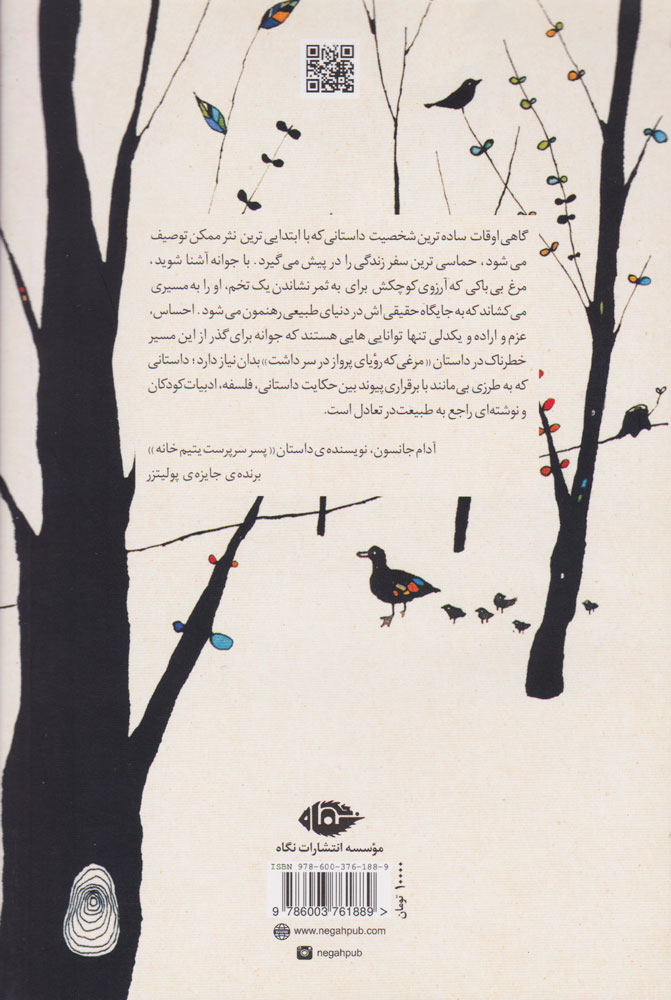 گاهی اوقات ساده ترین شخصیت داستانی که با ابتدایی ترین نثر ممکن توصیف
می شود، حماسی ترین سفر زندگی را در پیش می گیرد. با جوانه آشنا شوید،
مرغ بی باکی که آرزوی کوچکش برای به ثمر نشاندن یک تخم، او را به مسیری
می کشاند که به جایگاه حقیقی اش در دنیای طبیعی رهنمون می شود. احساس،
عزم و اراده و یکدلی تنها توانایی هایی هستند که جوانه برای گذر از این مسیر
خطرناک در داستان «مرغی که رؤیای پرواز در سر داشت» بدان نیاز دارد؛ داستانی
که به طرزی بی مانند با برقراری پیوند بین حکایت داستانی، فلسفه، ادبیات کودکان
و نوشته‌ای راجع به طبیعت در تعادل است.
آدام جانسون، نویسنده‌ی داستان «پسر سرپرست یتیم خانه»
برنده‌ی جایزه‌ی پولیتزر
نگاه
مؤسسه انتشارات نگاه
ISBN 978-600-376-188-9
9 786003 761889 >
۱۰۰۰۰ تومان
www.negahpub.com
negahpub